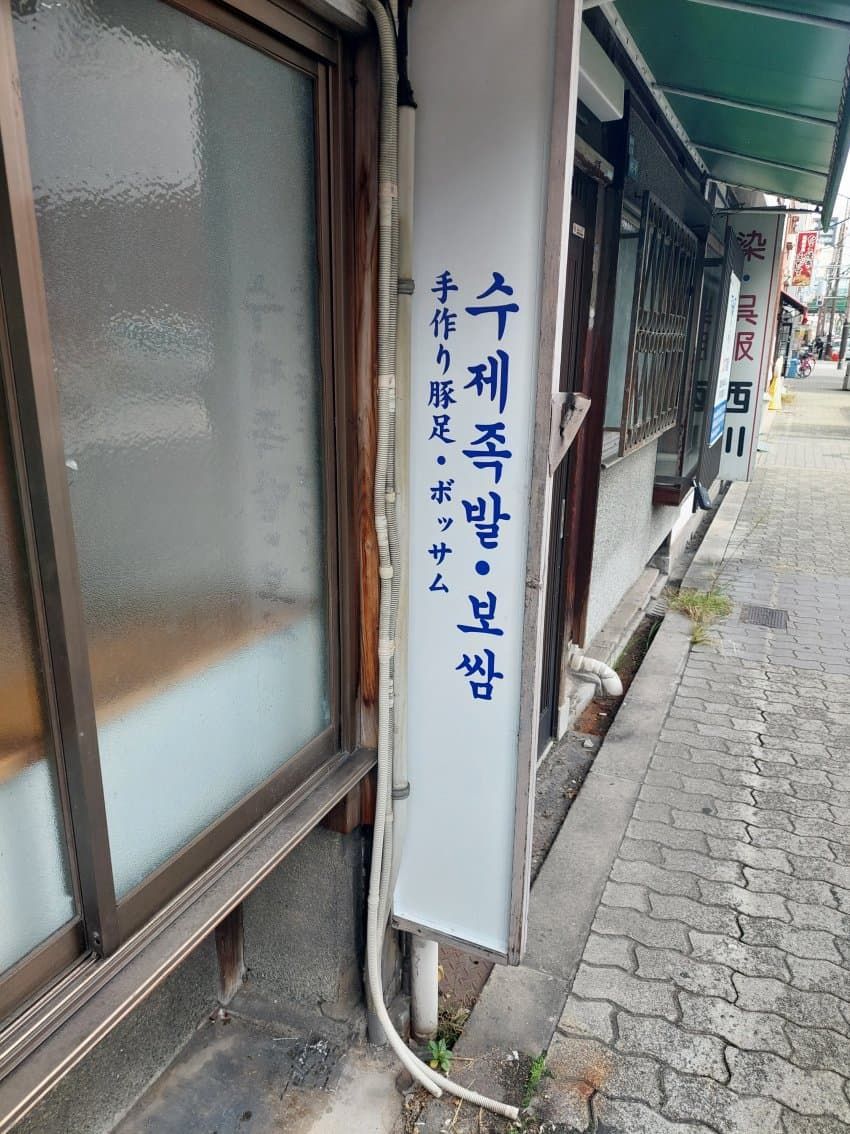 수제족발・보쌈
手作り豚足・ボッサム
染・呉服
西川